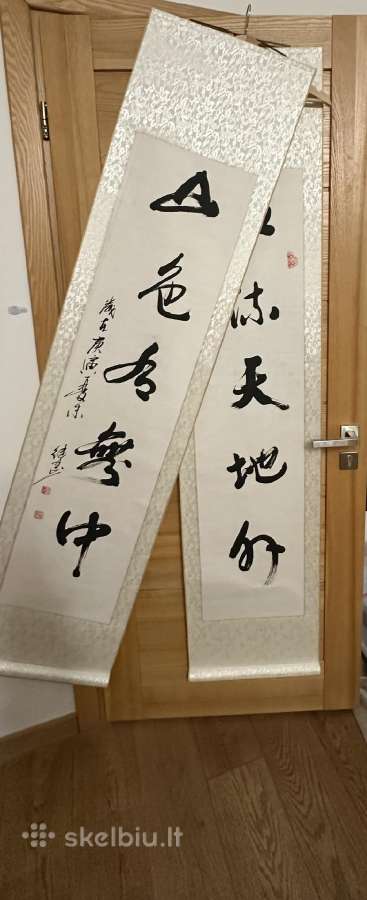 流天地外
山色有無中
歲在庚寅夏
skelbiu.lt